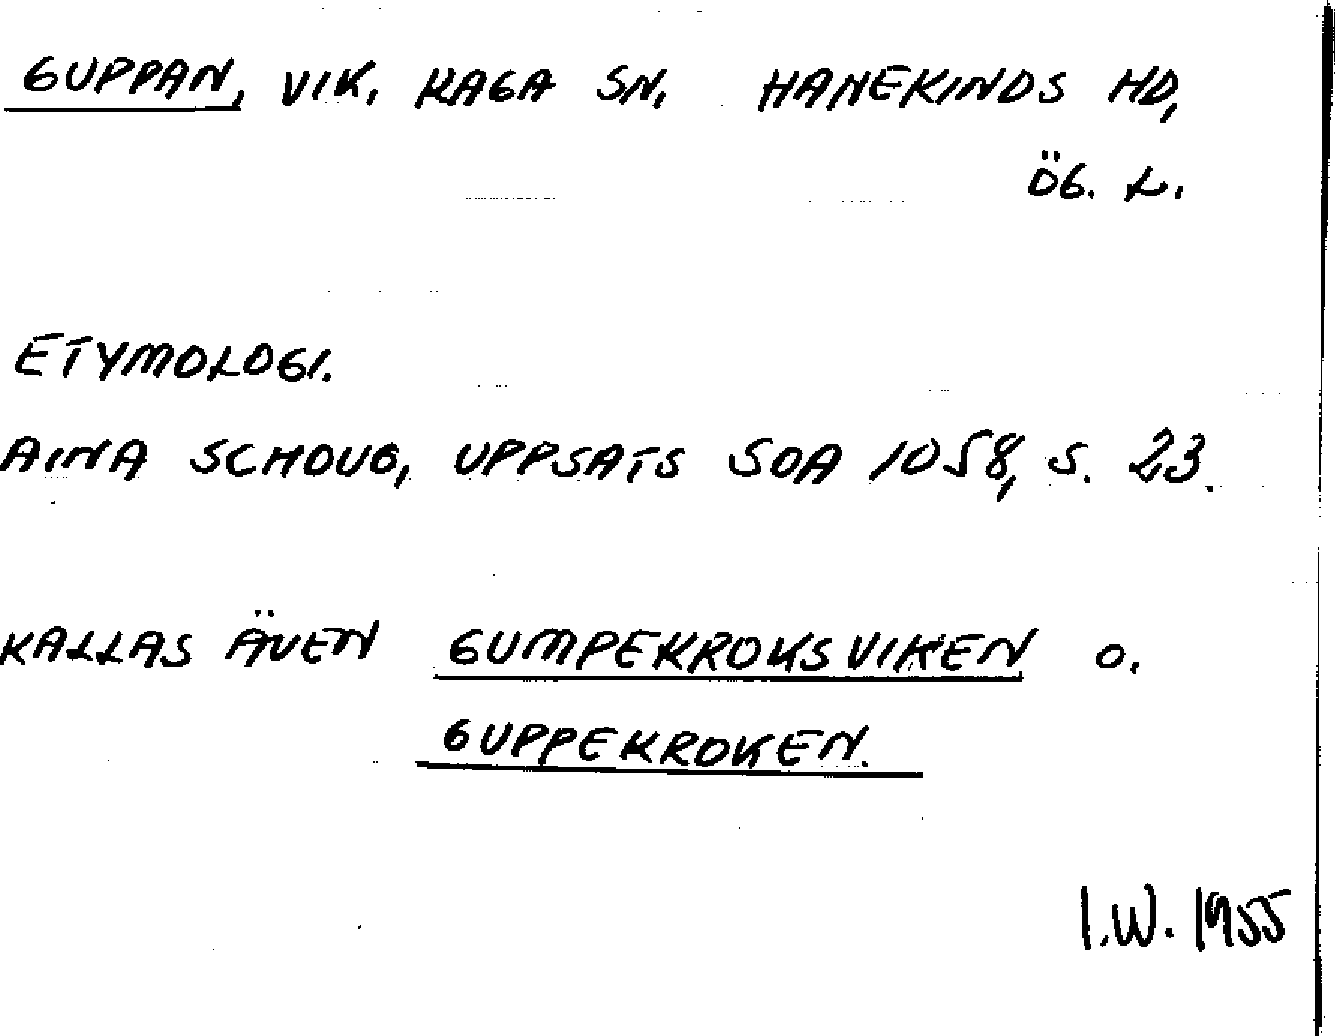 GUPPAN, VIK, KAGA SN, HANEKINDS HD,
ÖG. L.
ETYMOLOGI.
AINA SCHOUG, UPPSATS SOA 1058, S. 23.
KALLAS ÄVEN GUMPEKROKSVIKEN O.
GUPPEKROKEN.
I.W. 1955